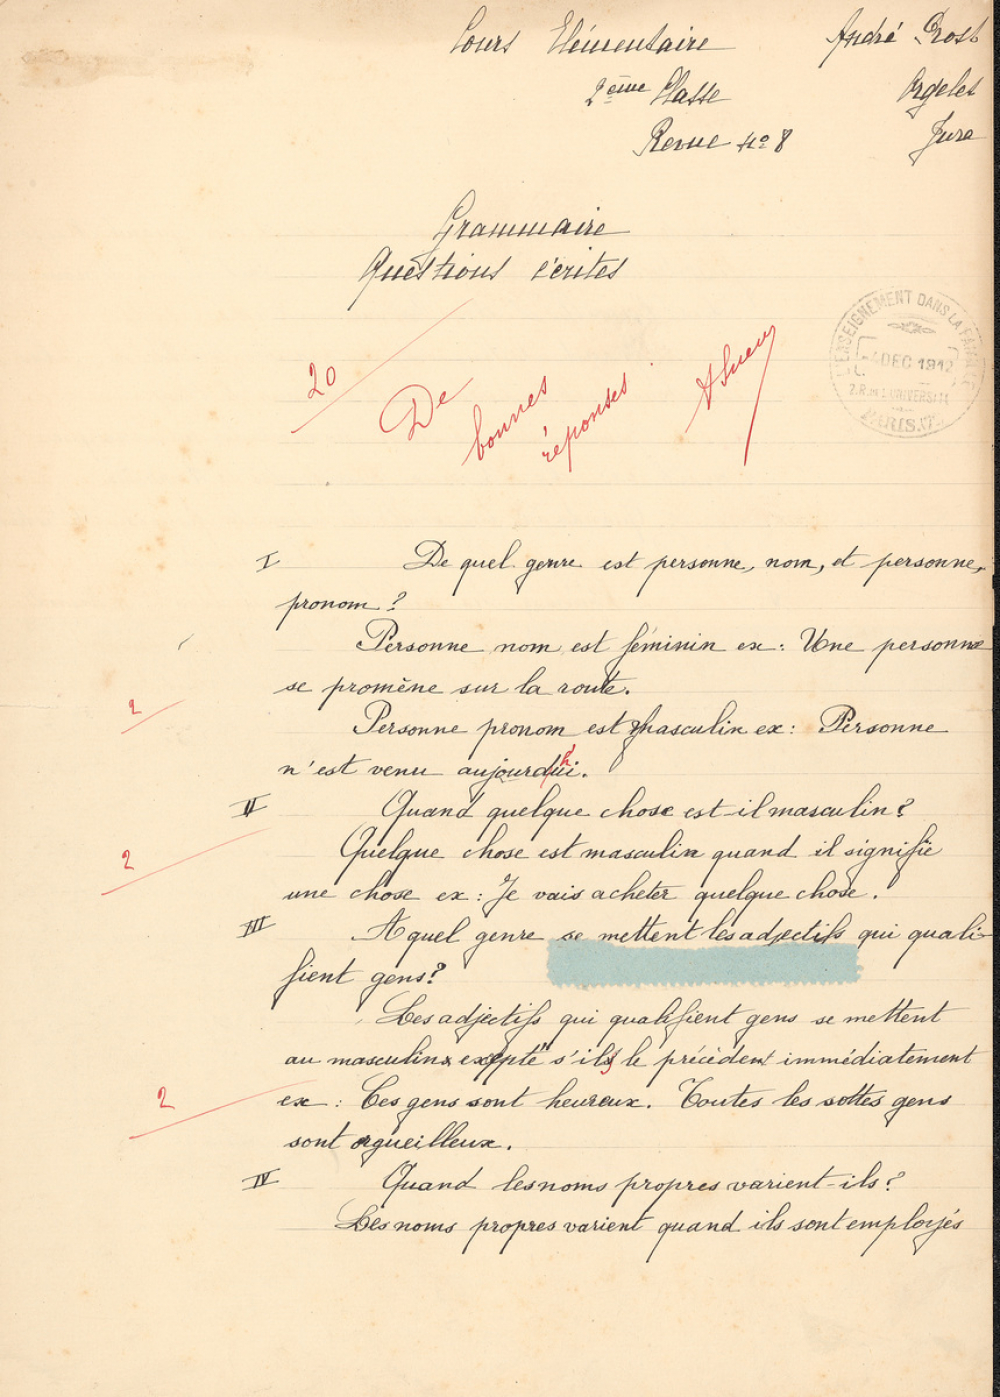 Cours Elémentaire André Prost
2ème Classe Orgelet
Revue No 8 Jura
Grammaire
Questions écrites
L'ENSEIGNEMENT DANS LA FAMILLE
4 DEC 1912
PARIS
20
De bonnes réponses
I De quel genre est personne, nom, et personne,
pronom ?
Personne nom est féminin ex : Une personne
se promène sur la route.
2
Personne pronom est masculin ex : Personne
n'est venu aujourd'hui.
II Quand quelque chose est-il masculin ?
2
Quelque chose est masculin quand il signifie
une chose ex : Je vais acheter quelque chose.
III A quel genre se mettent les adjectifs qui quali-
fient gens ?
Les adjectifs qui qualifient gens se mettent
au masculin excepté s'ils le précèdent immédiatement
2
ex : Ces gens sont heureux. Toutes les sottes gens
sont orgueilleux.
IV Quand les noms propres varient-ils ?
Les noms propres varient quand ils sont employés